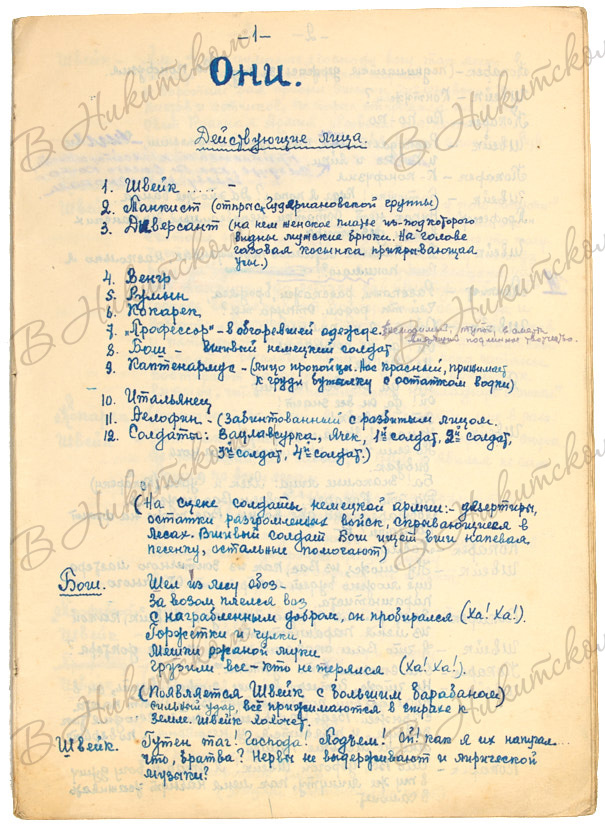 -1-
Они.
Действующие лица.
1. Швейк ..... -
2. Танкист (отпрыс. Гудериановской группы)
3. Диверсант (на нем женское платье из-под которого
видны мужские брюки. На голове
газовая косынка прикрывающая
усы.)
4. Венгр
5. Румын
6. Кокарек
7. "Профессор" - в обгоревшей одежде.
подлинное
8. Бош - вшивый немецкий солдат
9. Каптенармус - (лицо пропойцы. Нос красный, прижимает
к груди бутылку с остатком водки)
10. Итальянец
11. Делофин - (Забинтованный с разбитым лицом.
12. Солдаты: Вацлавсурка, Ячек, 1й солдат, 2й солдат,
3й солдат, 4й солдат.)
(На сцене солдаты немецкой армии:- дезертиры,
остатки разгромленых войск, скрывающиеся в
лесах. Вшивый солдат Бош ищет вши напевая
песенку, остальные помогают)
Бош. Шел из лесу обоз -
За возом плелся воз
С награбленным добром, он пробирался (Ха! Ха!).
Горжетки и чулки,
Мешки ржаной муки
Грузили все - кто не терялся (Ха! Ха!).
(Появляется Швейк с большим барабаном)
сильный удар, все прижимаются в страхе к
земле. Швейк хохочет.
Швейк. Гутен таг! Господа! Подъем! Ой! как я их напугал...
что, братва? Нервы не выдерживают и лирической
музыки?
В Никитском